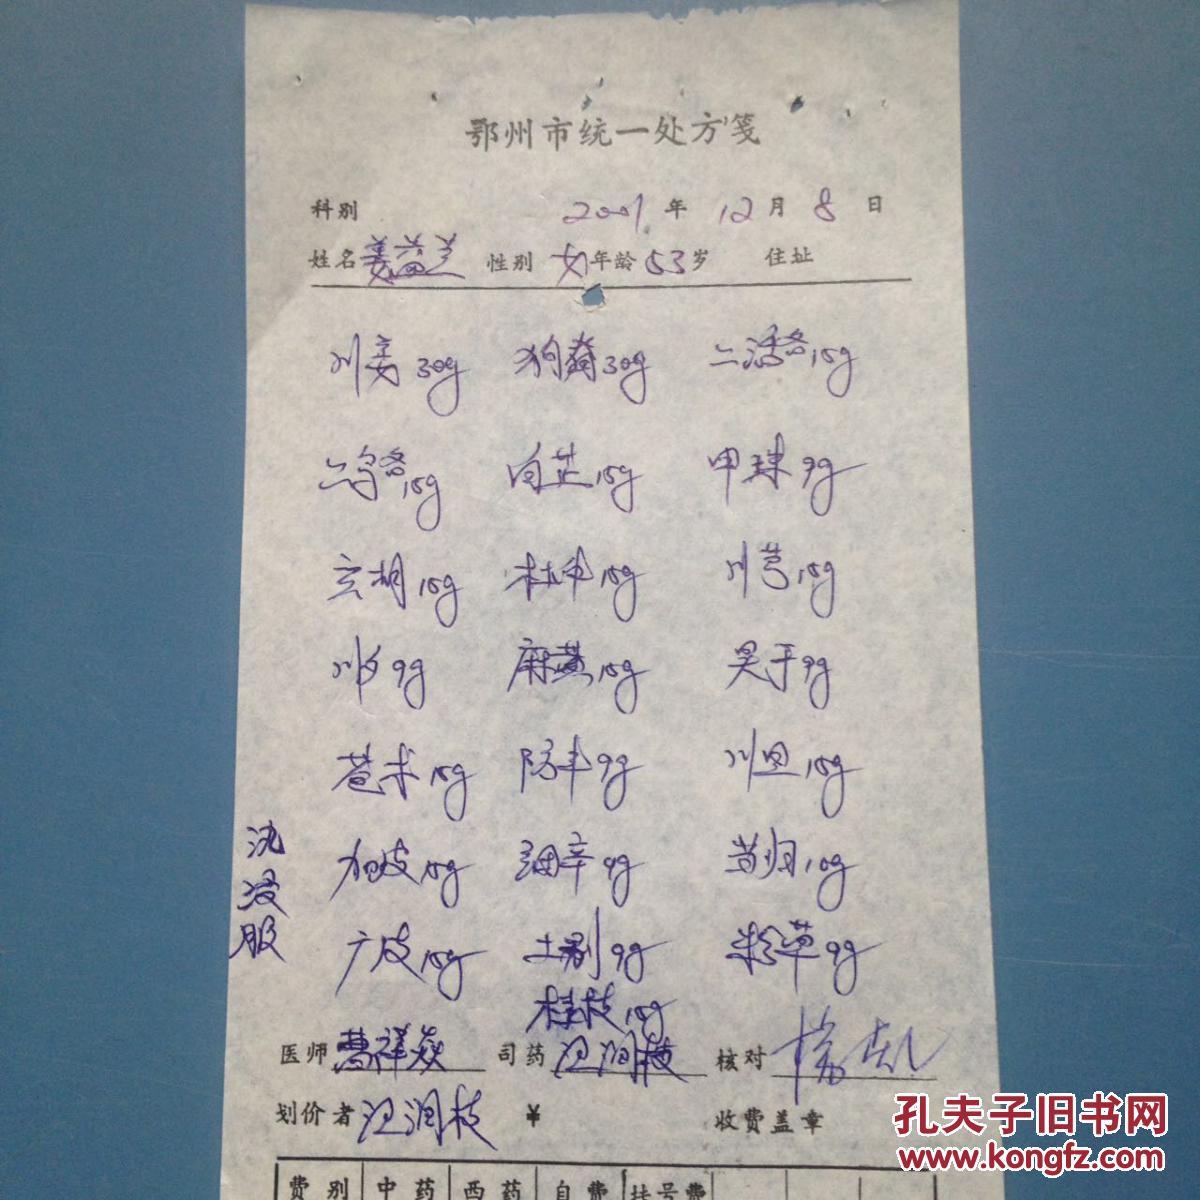 鄂州市统一处方笺
科别 2001年12月8日
姓名 姜益兰 性别 女 年龄 53岁 住址
30g 狗脊30g 二活各15g
二乌各15g 白芷15g 甲珠9g
玄胡15g 杜中15g 川芎15g
9g 麻黄15g 吴于9g
苍术15g 防丰9g 川思15g
加皮15g 细辛9g 当归10g
广皮15g 土别9g 粉草9g
桂枝15g
服
医师 曹祥焱 司药 汪润枝 核对
划价者 汪润枝 ¥ 收费盖章
费别 中药 西药 自费 挂号费
孔夫子旧书网
www.kongfz.com